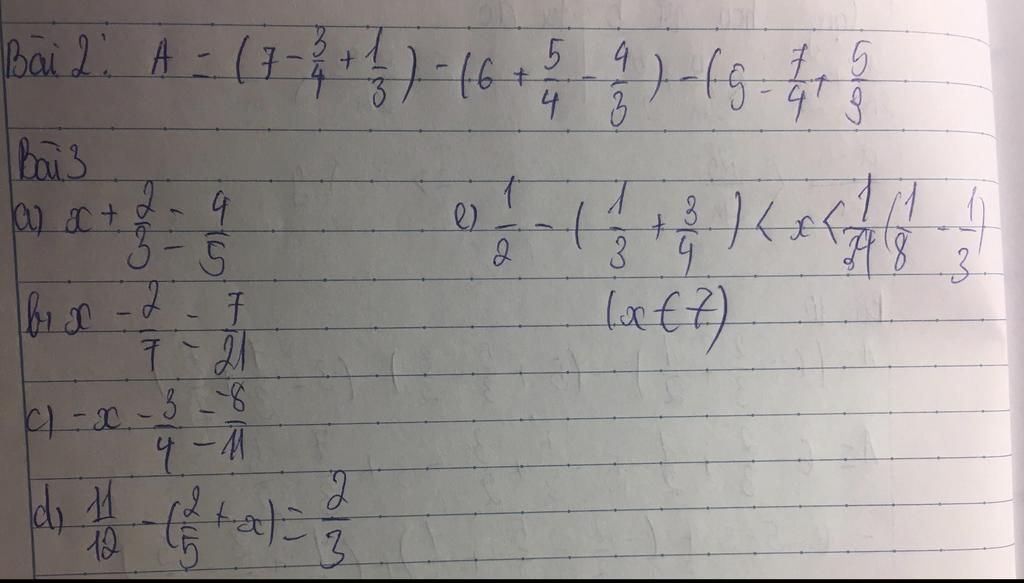 Bài 2: A = (7 - 3/4 + 1/3) - (6 + 5/4 - 4/3) - (5 - 7/4 + 5/3
Bài 3
a) x + 2/3 = 4/5
e) 1/2 - (1/3 + 3/4) < x < 1/24 (1/8 - 1/3)
b, x - 2/7 = 7/21
(x ∈ Z)
c) -x - 3/4 = -8/11
d, 11/12 - (2/5 + x) = 2/3